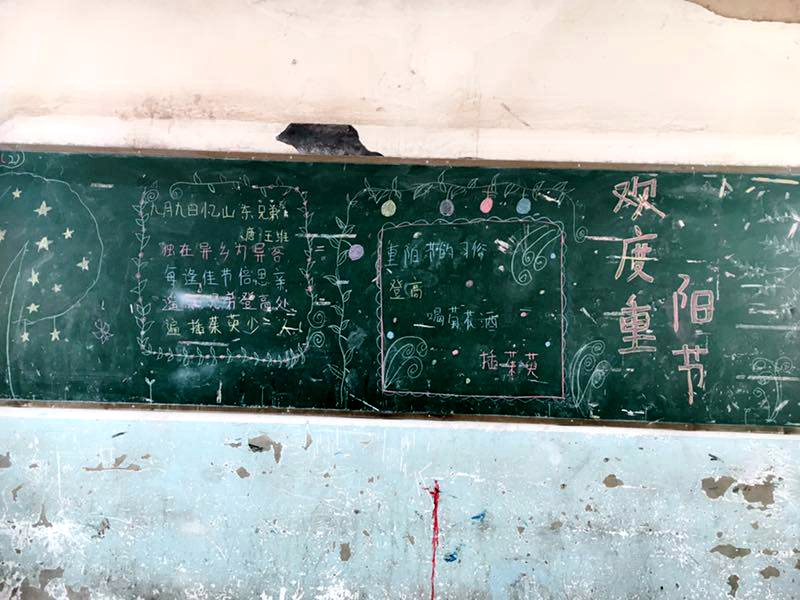 (2)
八月九日忆山东兄弟
唐 王维
独在异乡为异客
每逢佳节倍思亲
遥弟登高处
遍插茱萸少一人
重阳节的习俗
登高
喝菊花酒
插茱萸
欢度重
阳节